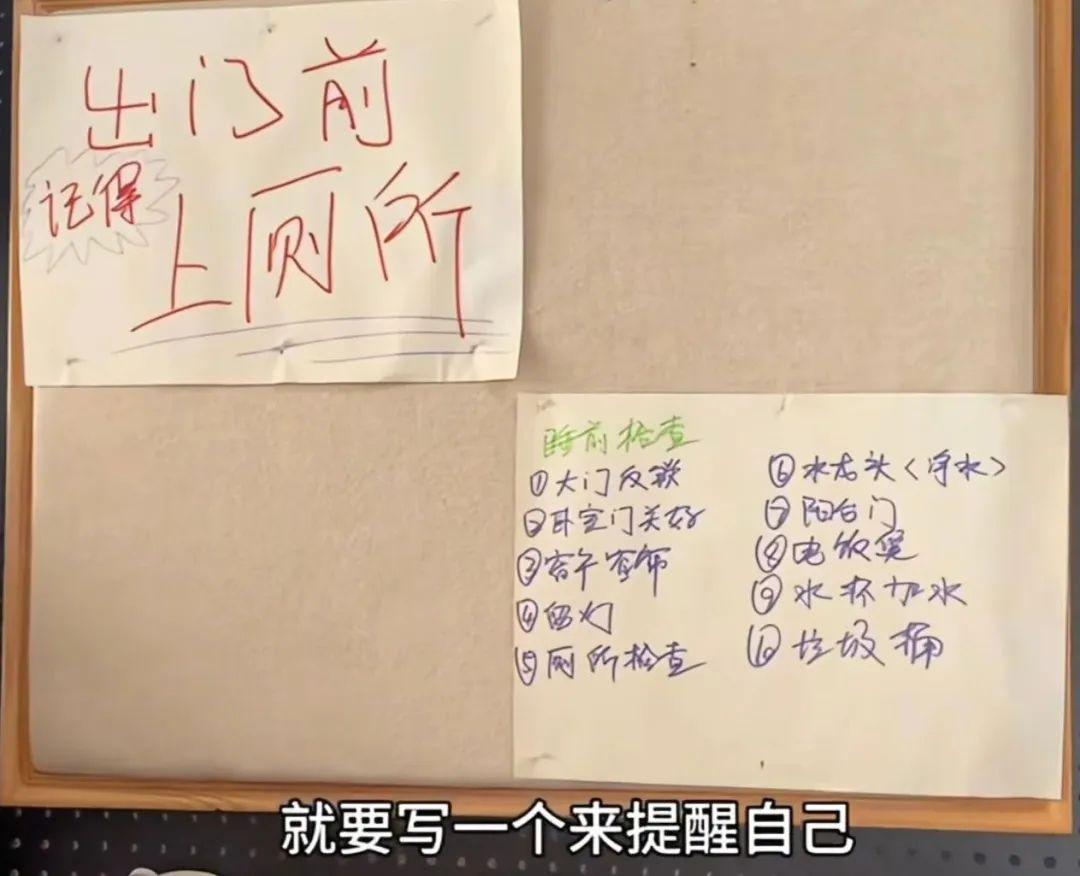 出门前
记得
上厕所
睡前检查
①大门反锁
②卧室门关好
③窗
④留灯
⑤厕所检查
⑥水龙头（净水）
⑦阳台门
⑧电饭煲
⑨水杯加水
⑩垃圾桶
就要写一个来提醒自己